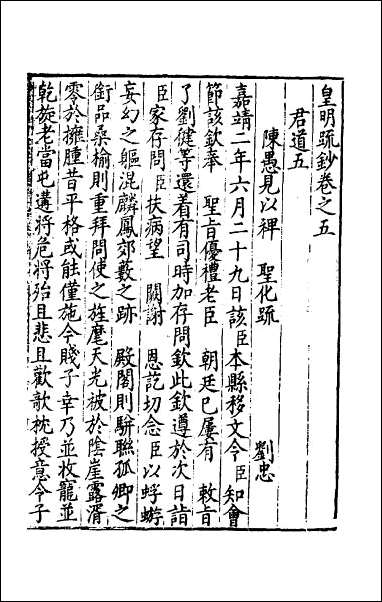 皇明疏鈔卷之五
君道五
陳愚見以裨 聖化疏 劉忠
嘉靖二年六月二十九日該臣本縣移文令臣知會
節該欽奉 聖旨優禮老臣 朝廷已屢有 敕旨
了劉健等還着有司時加存問欽此欽遵於次日詣
臣家存問臣扶病望 闕謝 恩訖切念臣以蜉蝣
妄幻之軀混麟鳳郊藪之跡 殿閣則駢聯孤卿之
銜品桑榆則重拜問使之旌麾天光被於陰崖露湑
零於擁腫昔平格或能僅施今賤子幸乃並枚寵並
乾旋老當屯遘將危將殆且悲且歡欹枕授意令子